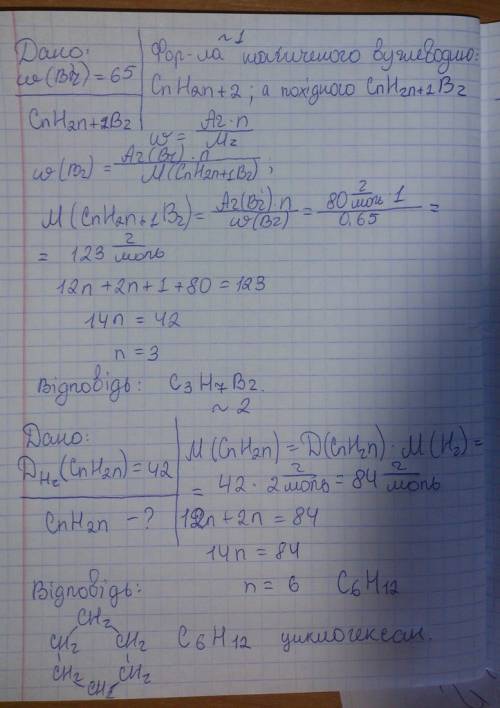 ~ 1
Дано:
w(Br) = 65
CnH2n+1Br
Фор-ла насиченого вуглеводню:
CnH2n+2; а похідного CnH2n+1Br
w = Ar·n / Mr
w(Br) = Ar(Br)·n / M(CnH2n+1Br);
M(CnH2n+1Br) = Ar(Br)·n / w(Br) = 80 г/моль · 1 / 0,65 =
= 123 г/моль
12n + 2n + 1 + 80 = 123
14n = 42
n = 3
Відповідь: C3H7Br.
~ 2
Дано:
DH2(CnH2n) = 42
CnH2n - ?
M(CnH2n) = D(CnH2n) · M(H2) =
= 42 · 2 г/моль = 84 г/моль
12n + 2n = 84
14n = 84
n = 6 C6H12
Відповідь:
CH2
CH2 CH2 C6H12 циклогексан.
CH2 CH2
CH2